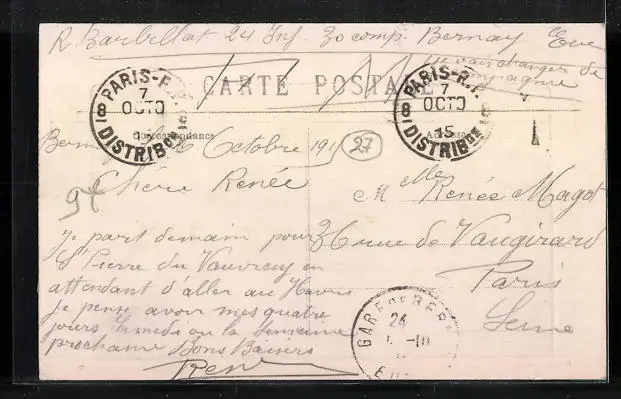 R Barbillat 24 Inf. 30 comp. Bernay Eure
je vais changer de
compagnie
CARTE POSTALE
PARIS-R.P.
7
OCTO
15
DISTRIBon
PARIS-R.P.
7
OCTO
15
DISTRIBon
Correspondance
Adresse
6 Octobre 191
27
Chère Renée
Mlle Renée Magot
36 rue de Vaugirard
Paris
Seine
9f
Je part demain pour
St Pierre du Vauvray en
attendant d'aller au Havre
Je pense avoir mes quatre
jours Samedi ou la Semaine
prochaine Bons Baisers
René
GARE DE BERN
24